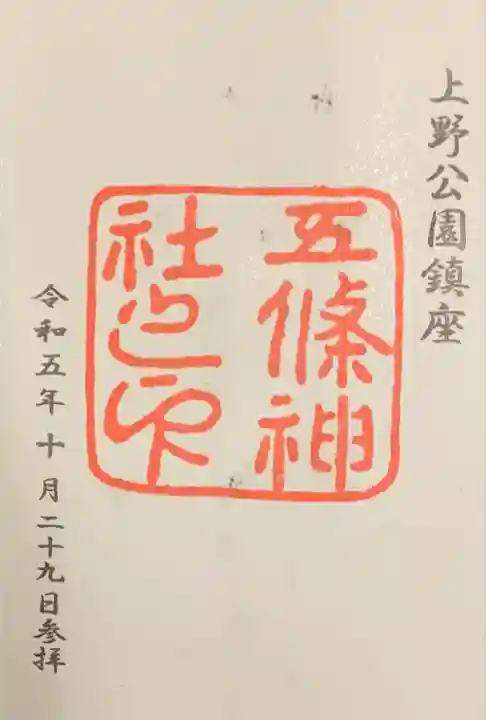 上野公園鎮座
五條神
社之印
令和五年十月二十九日参拝